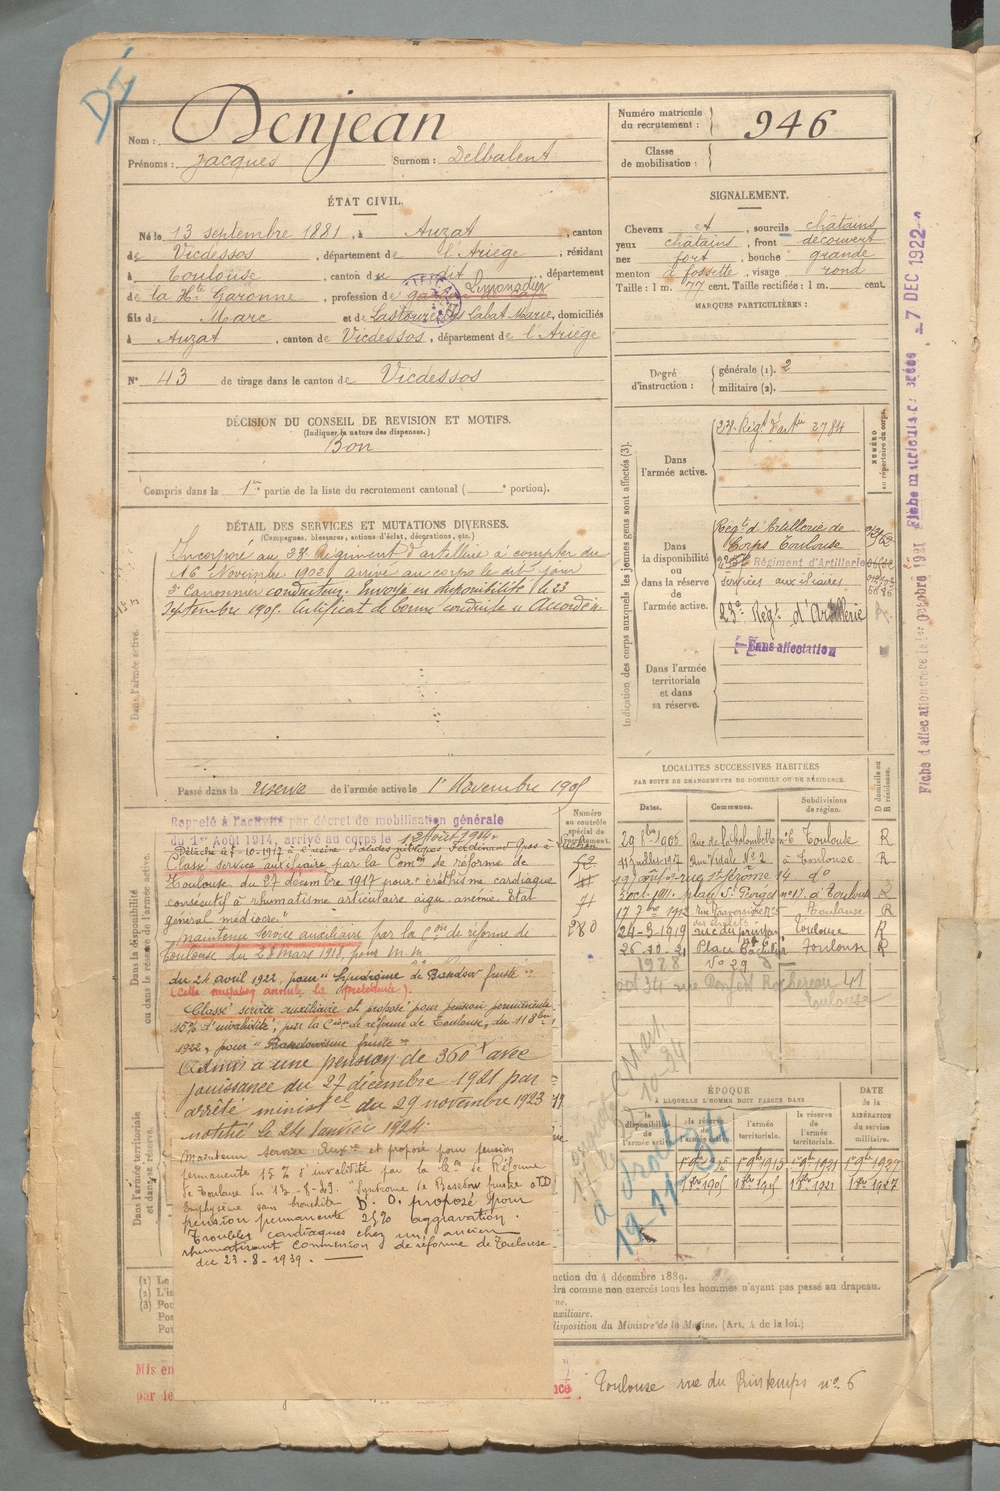 DI
Nom : Denjean
Prénoms : Jacques Surnom : Delbalent
Numéro matricule du recrutement : 946
Classe de mobilisation :
ÉTAT CIVIL.
Né le 13 septembre 1881, à Auzat, canton
de Vicdessos, département de l'Ariège, résidant
à Toulouse, canton du dit, département
de la Hte Garonne, profession de Limonadier
fils de Marc et de Labat Marie, domiciliés
à Auzat, canton de Vicdessos, département de l'Ariège
N° 43 de tirage dans le canton de Vicdessos
SIGNALEMENT.
Cheveux et, sourcils châtains
yeux châtains, front découvert
nez fort, bouche grande
menton à fossette, visage rond
Taille : 1 m. 77 cent. Taille rectifiée : 1 m. cent.
MARQUES PARTICULIÈRES :
Degré d'instruction : générale (1). 2
militaire (2).
DÉCISION DU CONSEIL DE REVISION ET MOTIFS.
(Indiquer la nature des dispenses.)
Bon
Compris dans la 1re partie de la liste du recrutement cantonal ( e portion).
DÉTAIL DES SERVICES ET MUTATIONS DIVERSES.
(Campagnes, blessures, actions d'éclat, décorations, etc.)
Incorporé au 23e Régiment d'artillerie à compter du
16 Novembre 1902, arrivé au corps le dit jour
2e Canonnier conducteur. Envoyé en disponibilité le 23
Septembre 1905. Certificat de bonne conduite "Accordé".
Dans l'armée active.
Passé dans la réserve de l'armée active le 1er Novembre 1905
Indication des corps auxquels les jeunes gens sont affectés (3).
NUMÉRO au répertoire du corps.
Dans l'armée active.
23e Régt d'artie 2784
Dans la disponibilité ou dans la réserve de l'armée active.
Régt d'Artillerie de
Corps Toulouse
Régiment d'Artillerie
services auxiliaires
23e Régt d'Artillerie
Sans affectation
Dans l'armée territoriale et dans sa réserve.
Fiche matricule créée 7 DEC 1922
Rappelé à l'activité par décret de mobilisation générale
du 1er Août 1914, arrivé au corps le 12 Août 1914.
Classé service auxiliaire par la Comon de réforme de
Toulouse du 27 décembre 1917 pour "éréthisme cardiaque
consécutif à rhumatisme articulaire aigu, anémie. Etat
général médiocre"
maintenu service auxiliaire par la Con de réforme de
Toulouse du 28 Mars 1918, pour m.m.
du 24 avril 1922, pour "Syndrome de Basedow fruste"
(cette mutation annule la précédente).
Classé service auxiliaire et proposé pour pension permanente
15% d'invalidité, par la Cion de réforme de Toulouse, du 11 8bre
1922, pour "Basedowisme fruste"
Admis à une pension de 360f avec
jouissance du 27 décembre 1921 par
arrêté ministel du 29 novembre 1923
notifié le 24 Janvier 1924.
Maintenu service Auxre et proposé pour pension
permanente 15% d'invalidité par la Con de Réforme
de Toulouse du 13-8-29. "Syndrome de Basedow fruste
Emphysème sans bronchite D. O. proposé pour
pension permanente 25% aggravation.
Troubles cardiaques chez un ancien
rhumatisant Commission de réforme de Toulouse
du 23-8-1939.
Dans la disponibilité ou dans la réserve de l'armée active.
Dans l'armée territoriale et dans sa réserve.
Numéro au contrôle spécial du recrutement.
280
LOCALITÉS SUCCESSIVES HABITÉES
PAR SUITE DE CHANGEMENTS DE DOMICILE OU DE RÉSIDENCE.
Dates. Communes. Subdivisions de région. D domicile ou R résidence.
Rue de la Colombette n° 6 Toulouse R
11 juillet 1907 Rue Vidale N° 2 à Toulouse R
rue St Rome 14 do
n° 17 à Toulouse R
17 7bre 1912 Toulouse R
24-3-1919 Toulouse R
26-10-21 Place Toulouse R
1928 N° 29
oct 34 rue Denfert Rochereau 41
Toulouse
ÉPOQUE
À LAQUELLE L'HOMME DOIT PASSER DANS
la disponibilité de l'armée active
la réserve de l'armée active
l'armée territoriale.
la réserve de l'armée territoriale.
DATE de la LIBÉRATION du service militaire.
1er 9bre 1905 1er 9bre 1915 1er 9bre 1921 1er 9bre 1927
19-11-34
(1) Le
(2) L'i
(3) Pou
Pou
Pou
uction du 4 décembre 1889.
dra comme non exercés tous les hommes n'ayant pas passé au drapeau.
rne.
auxiliaire.
disposition du Ministre de la Marine. (Art. 4 de la loi.)
Mis en
par le
Toulouse rue du Printemps n° 6